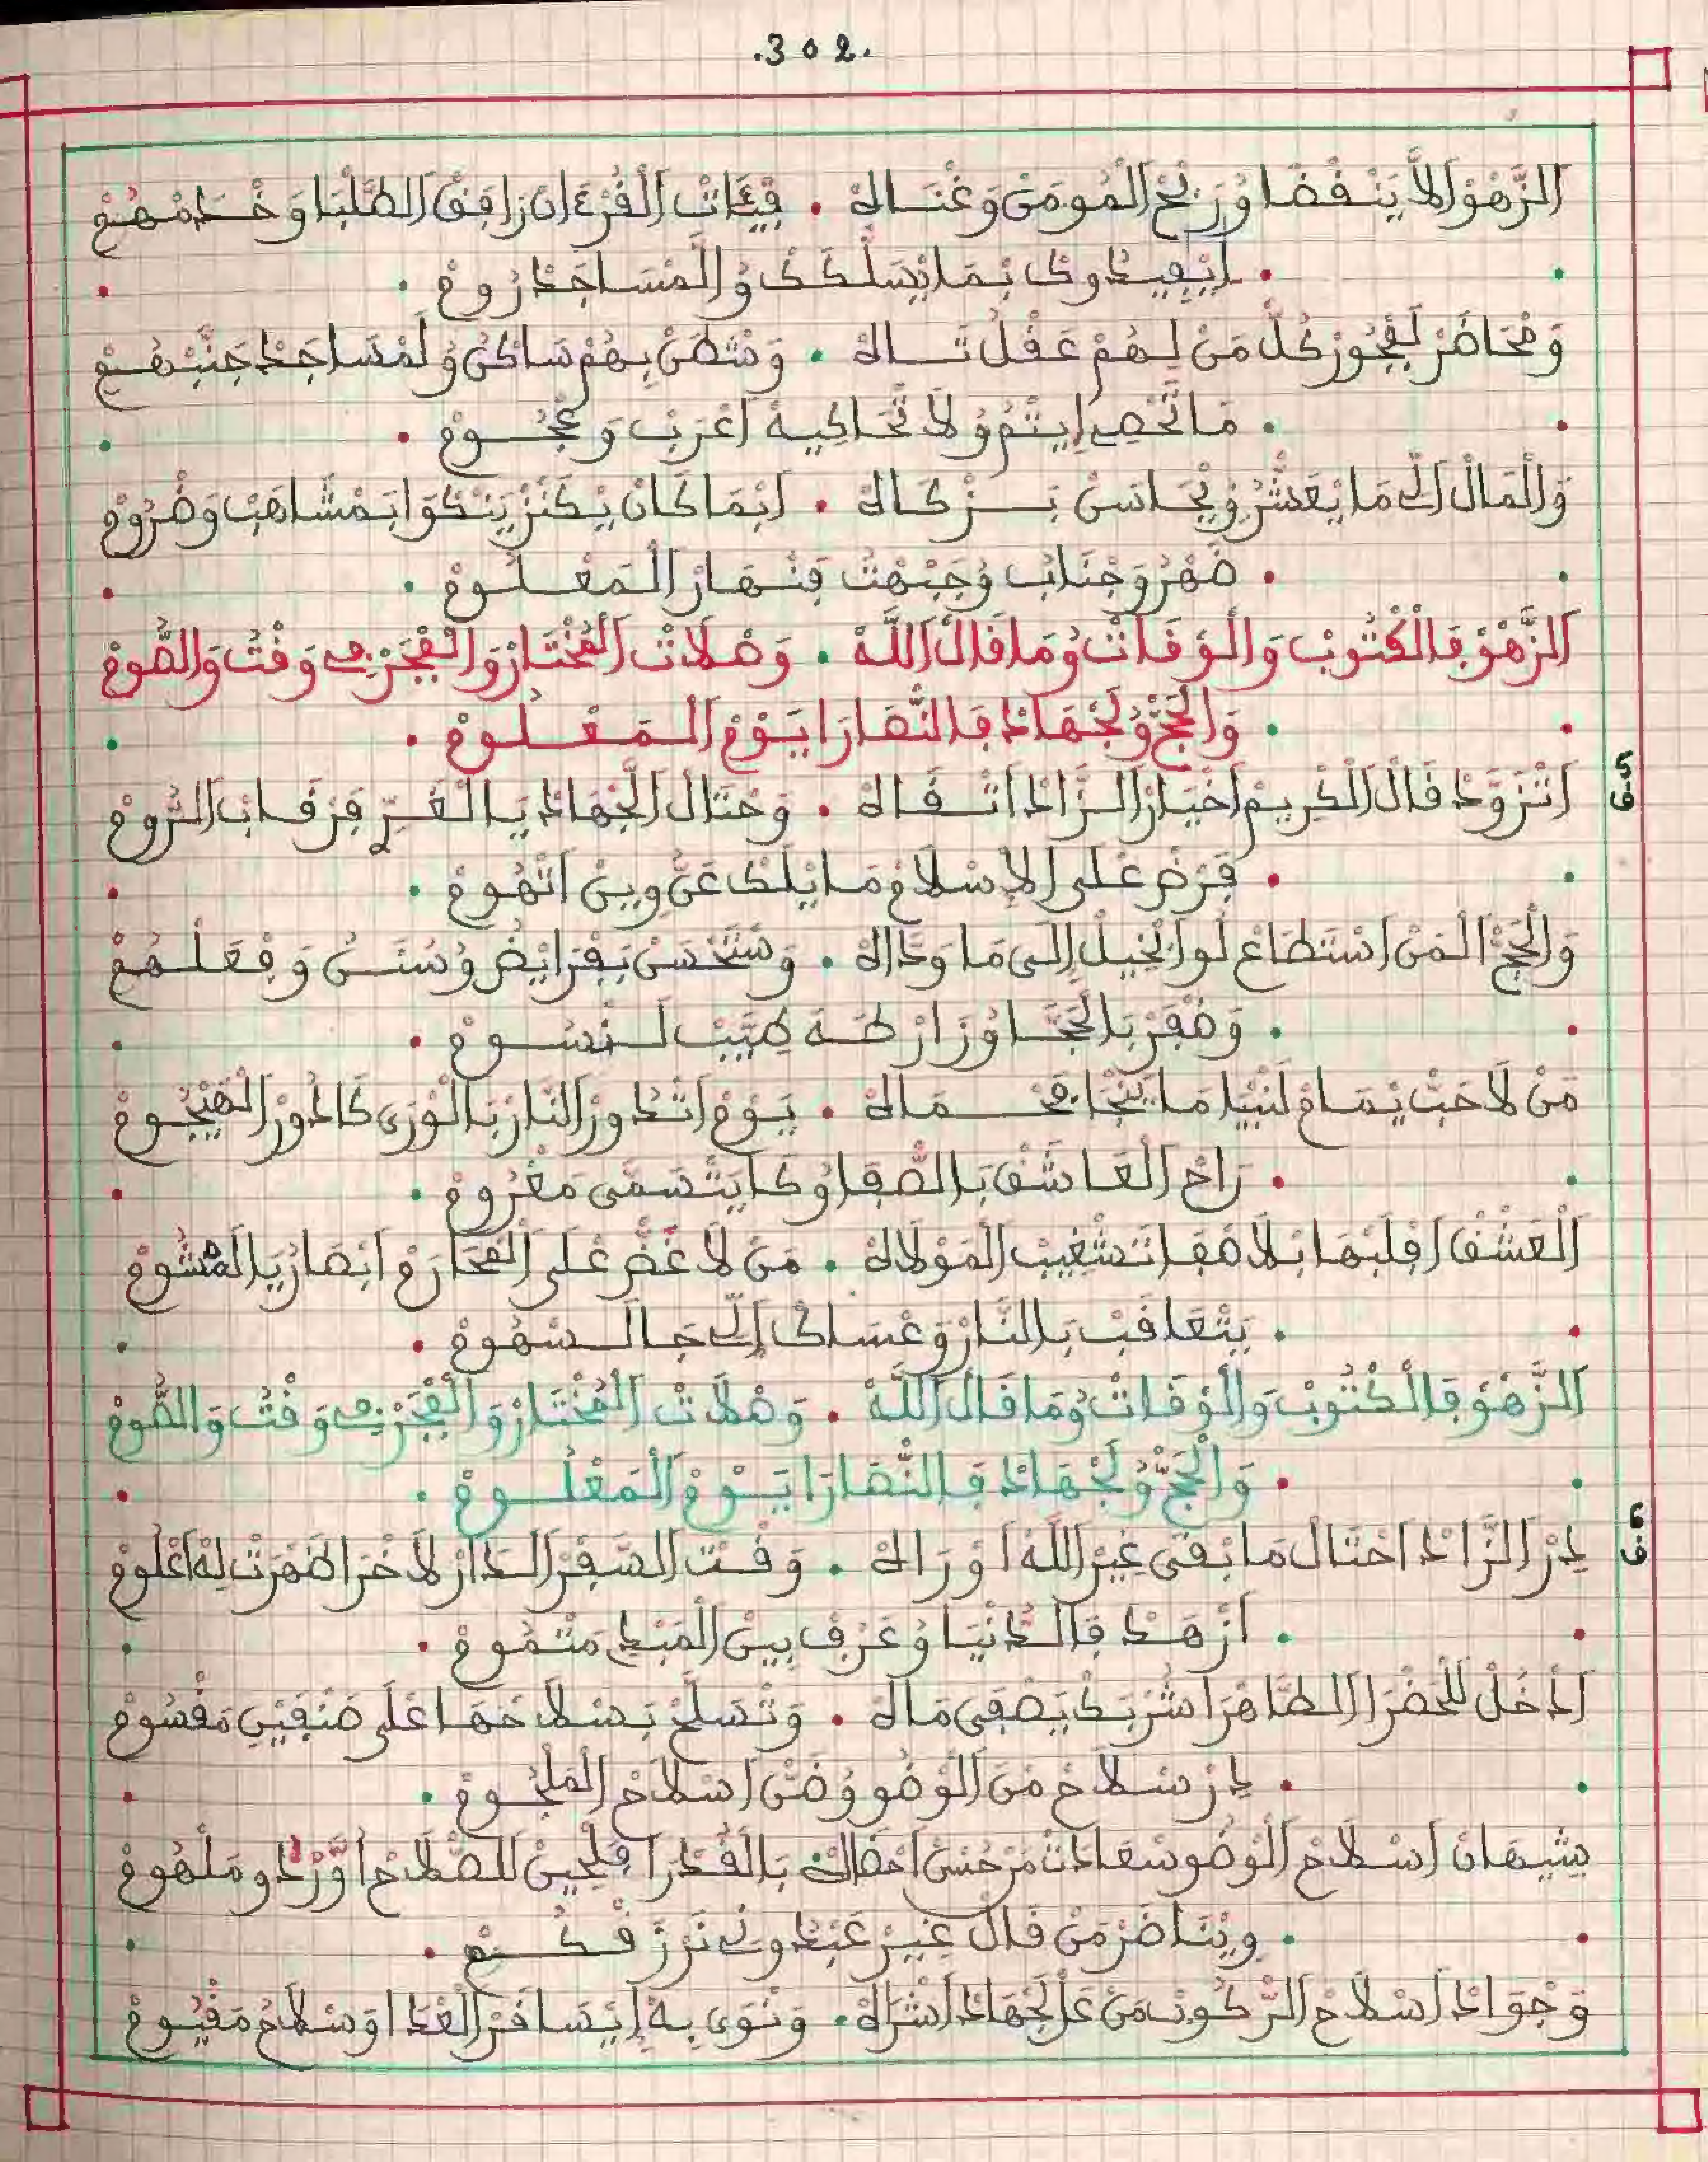 .302.
الزَّهْوْ الَا يَنْفْضَا وُرَبْحْ الْمُومَنْ وَغْنَاهْ . فِيَّاتْ الْقُرْءَانْ رَافِقْ الطَّلْبَا وَخْدَمْهُمْ
. اِيْفِيدُوكْ بْمَا يْسَلْكَكْ وُالْمْسَاجَدْ رُومْ .
وَمْحَاضَرْ لَفْجُورْ كُلّْ مَنْ لِهُمْ عَقْلُ تَاهْ . وَسْتَحْصَنْ بِهُمْ سَاكْنُ وُلَمْسَاجَدْ جَنَّبْهُمْ
. مَا تَّحْصِ اِيْتْمُ وُلَا تْحَاكِيهْ اَعْرَبْ وَعْجُومْ .
وَالْمَالْ الِّى مَا يْعَشّْرُ وِيْجَانَسْ بَزْكَاهْ . اِيْمَا كَانْ يَكْنَزْ يَنْكْوَا بَمْشَاهَبْ وَضْرُومْ
. ضَهْرُ وَجْنَابُ وُجَبْهْتُ فَنْهَارْ الْمَعْلُومْ .
الزَّهْوْ فَالْكْتُوبْ وَالْوْقَاتْ وُمَا قَالْ اللَّهْ . وَصْلَاتْ الْمُخْتَارْ وَالْفْجَرْ فِي وَقْتُ وَالصُّومْ
. وَالْحَجّْ وُلَجْهَادْ فَالنّْصَارَا يَوْمْ الْمَعْلُومْ .
ق5 اَتْزَوَّدْ قَالْ الْكْرِيمْ اَخْيَارْ الزَّادْ اَتْقَاهْ . وَحْتَالْ الْجْهَادْ يَا الْغَرّْ فَرْقَابْ الرُّومْ
. فَرْضْ عْلَى الِاسْلَامْ مَا يْلَكْ عَنُّ وِينْ اَتْهُومْ .
وَالْحَجّْ الْمَنْ اسْتَطَاعْ لُو الْخِيلْ اِلَى مَا وَدَّاهْ . وَسْتَحْسَنْ بَفْرَايْضُ وُسُنَّتْ وَفِعَلْهُمْ
. وَضْفَرْ بَالْحَجَّا وُزَارْ طَهَ طِيَّبْ لَنْسُومْ .
مَنْ لَا حَبّْ يْمَامْ لَنْبِيَا مَا يَنْجَا فَحْمَاهْ . يَوْمْ اَتْدُورْ النَّارْ بَالْوْرَى كَادُورْ الْهَيْجُومْ
. رَاحْ الْعَاشَقْ بَالصّْفَا وُكَا يَتْسَمَّى مَغْرُومْ .
الْعَشْقْ اِقْلَبْهَا بْلَا صْفَا تَسْتْغِيبْ الْمَوْلَاهْ . مَنْ لَا غَضّْ عْلَى الْمْحَارَمْ اَبْصَارُ يَا الْمْشُومْ
. يَتْعَاقَبْ بَالنَّارْ وَعْسَاكْ اِلَى جَا لَسْهُومْ .
الزَّهْوْ فَالْكْتُوبْ وَالْوْقَاتْ وُمَا قَالْ اللَّهْ . وَصْلَاتْ الْمُخْتَارْ وَالْفْجَرْ فِي وَقْتُ وَالصُّومْ
. وَالْحَجّْ وُلَجْهَادْ فَالنّْصَارَا يَوْمْ الْمَعْلُومْ .
ق6 دِرْ الزَّادْ اَحْتَالْ مَا بْقَى غِيرْ اللَّهْ اَوْرَاكْ . وَقْتْ السّْفَرْ الْدَارْ لَاخْرَا ضَهْرَتْ لِهْ اَعْلُومْ
. اَزْهَدْ فَالدَّنْيَا وُعَرْفْ بِينْ الْمَبْدِ مَتْمُومْ .
اَدْخُلْ للْحَضْرَا الطَّاهْرَا شُرْبَكْ يَصْفَى مَاهْ . وَتْسَلَّحْ بَسْلَاحَهَا عْلَى صَنْفَيْنِ مَقْسُومْ
. دِرْ سْلَاحْ مْنَ الْوْضُو وُضَنّْ اَسْلَاحْ الْمَلْجُومْ .
شِيهَانْ اَسْلَاحْ الْوْضُو سْعَادَتْ مَنْ حُسْنْ اَحْضَاهْ بَالْقُدْرَا فَلْحِينْ للصّْلَاحْ اَوَّرْدُ وُمَلْهُومْ
. وِيْنَاضَرْ مَنْ قَالْ غِيرْ عَبْدُونِ نَرْزَقْكُمْ .
وَجْوَادْ اَسْلَاحْ الرّْكُوبْ مَنْ عَلْ لَجْهَادْ اَشْرَاهْ . وَنْوَى بِهْ اِيْسَافَرْ الْعْدَا اوَسْلَاحُ مَقْيُومْ